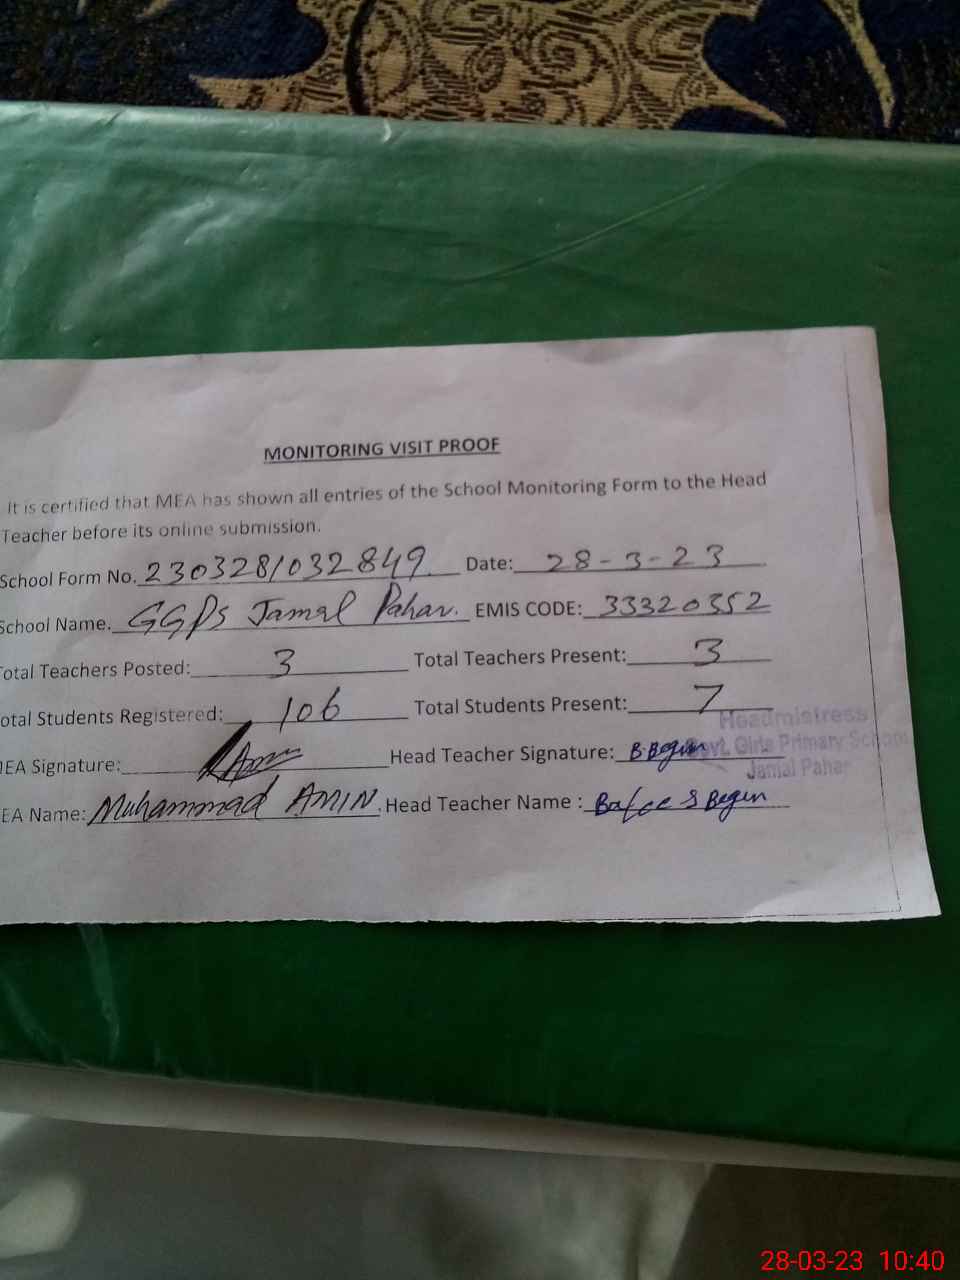 MONITORING VISIT PROOF
It is certified that MEA has shown all entries of the School Monitoring Form to the Head
Teacher before its online submission.
School Form No. 2303281032849 Date: 28-3-23
School Name. GGPS Jamal Pahar. EMIS CODE: 33320352
Total Teachers Posted: 3 Total Teachers Present: 3
otal Students Registered: 106 Total Students Present: 7
Headmistress
Govt. Girls Primary School
Jamal Pahar
MEA Signature: Amin Head Teacher Signature: B.Begum
EA Name: Muhammad AMIN. Head Teacher Name : Begum
28-03-23 10:40